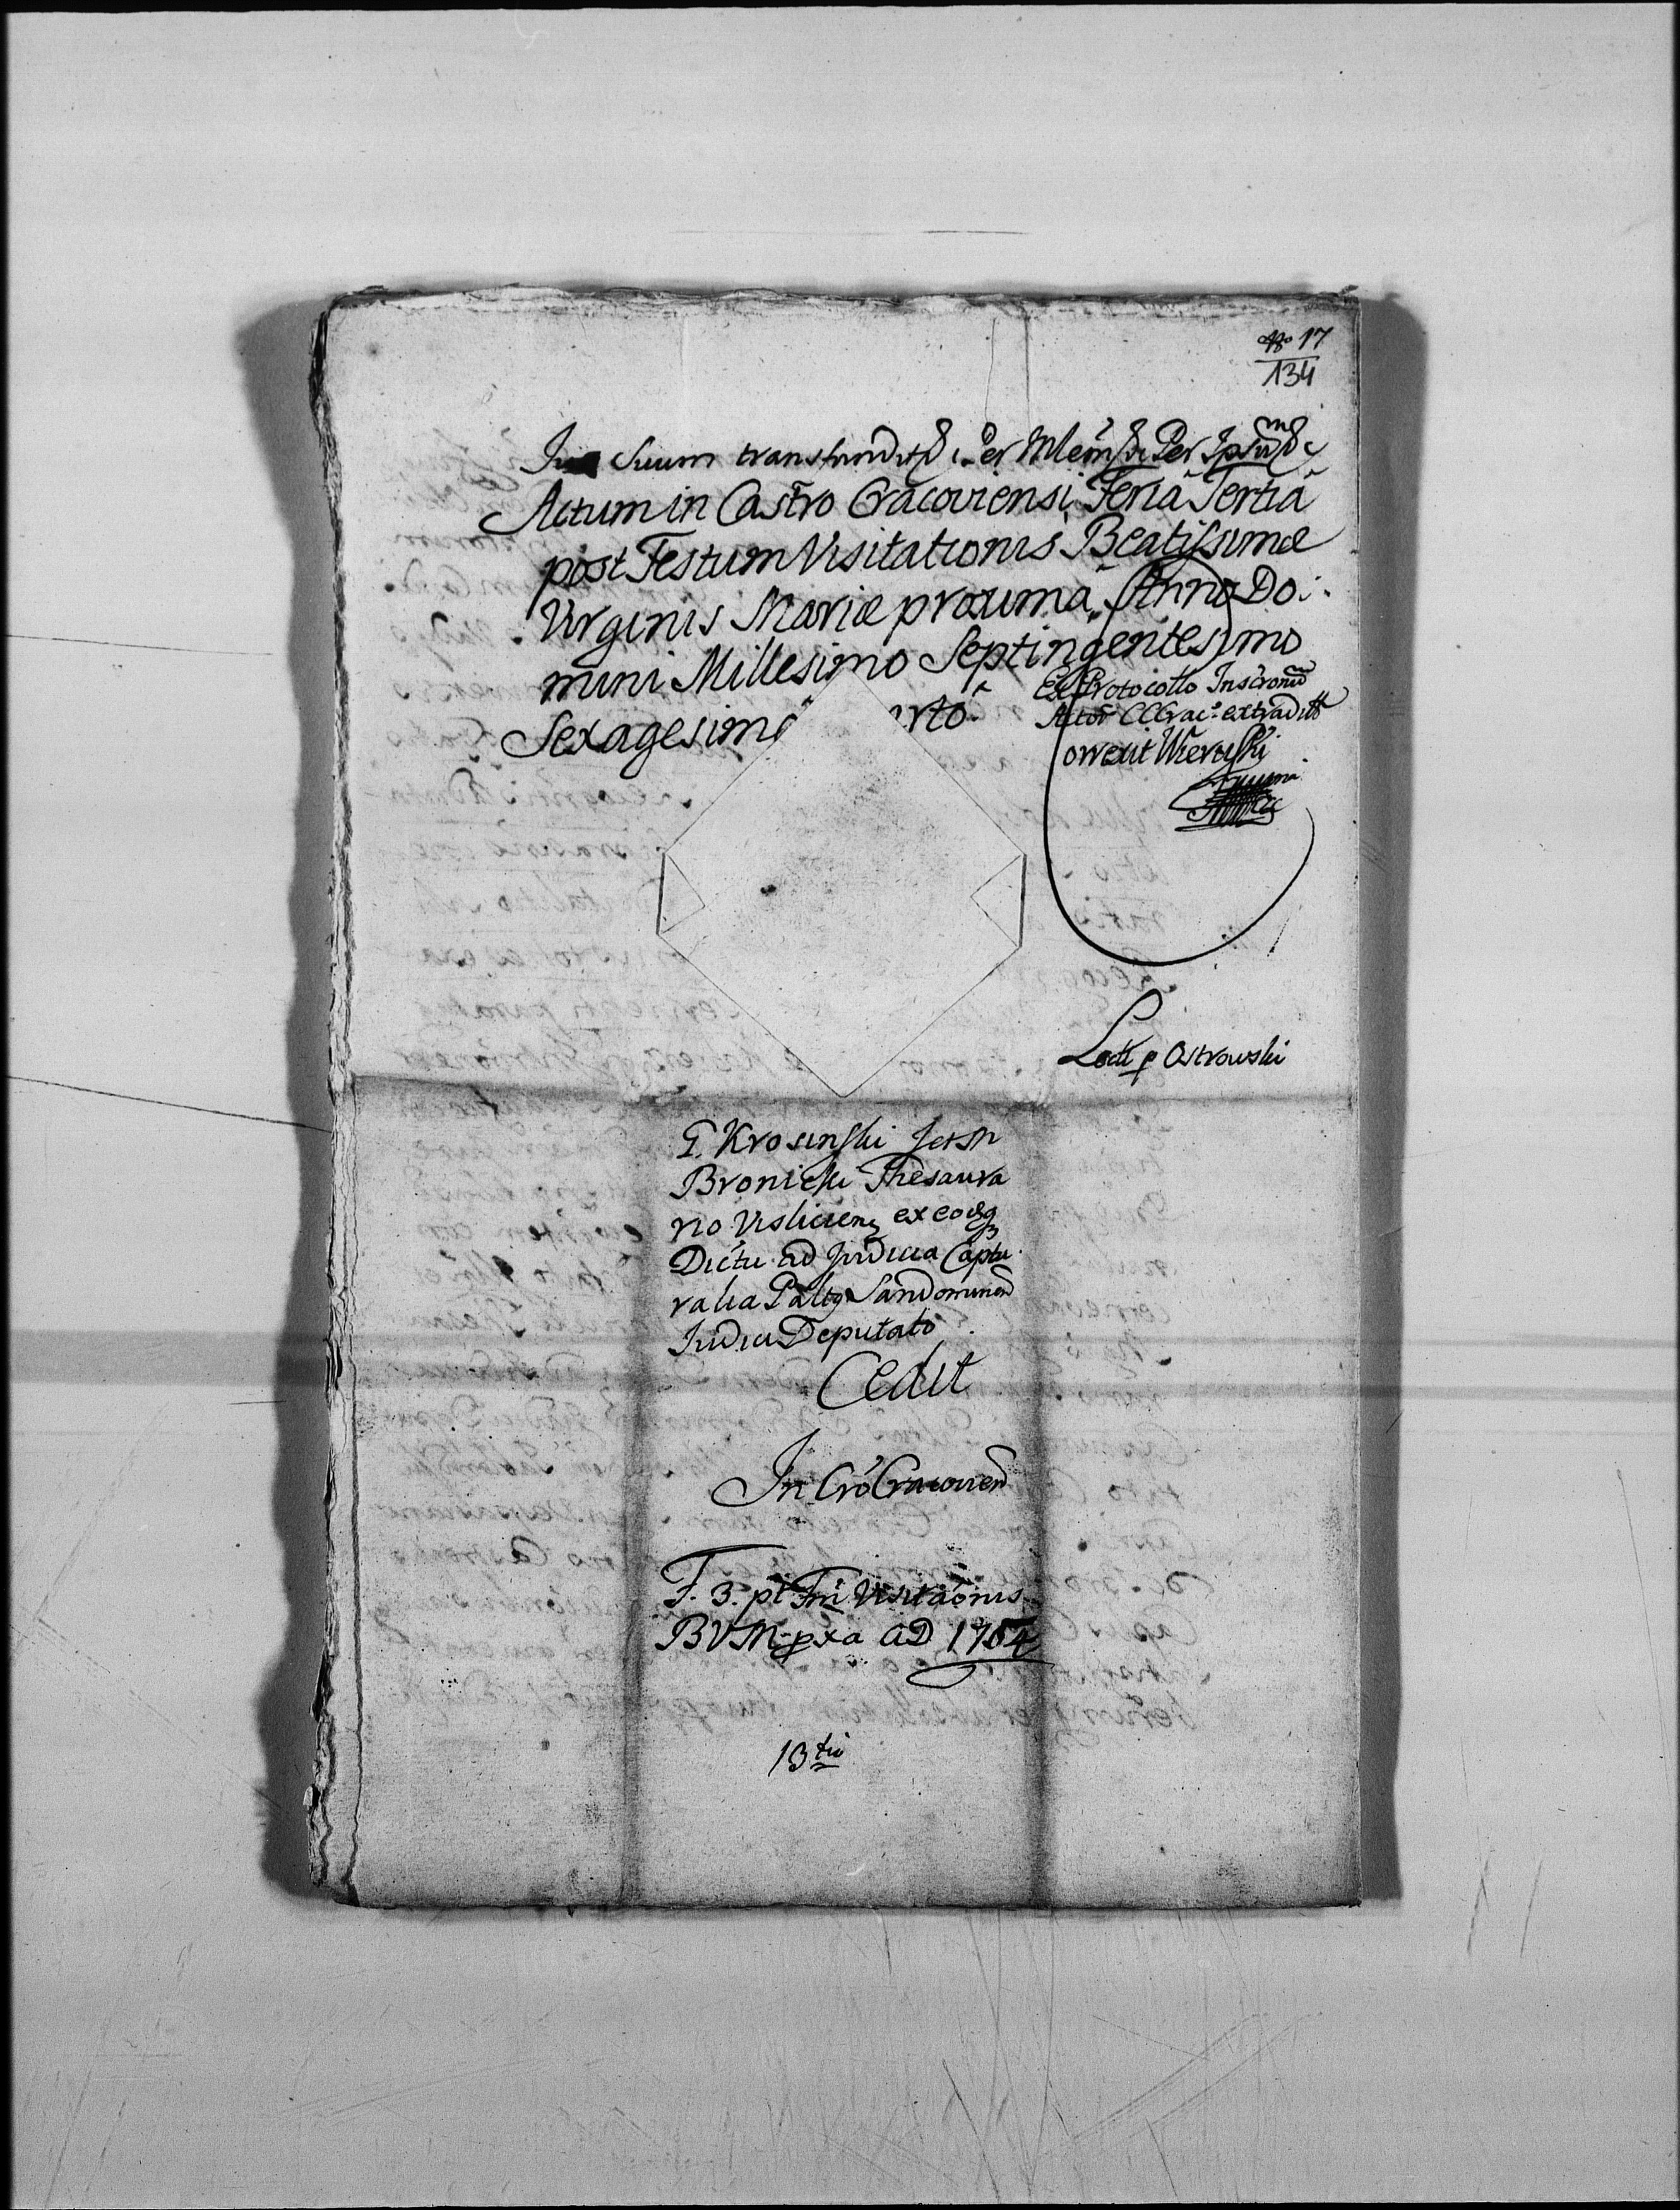 No 17
134
Suum transfund Per Per
Actum in Castro Cracoviensi Feria Tertiâ
post Festum Visitationis Beatissimæ
Virginis Mariæ proximâ Anno Do:
mini Millesimo Septingentesimo
Sexagesimô rtô.
Ex Protocollo Inscronũ
Actor CCCrac: extradit
orrexit Wieruski
Lectt p Ostrowski
G. Krosinski
Bronicki Thesaura
rio Vislicien ex eodg
Dictu ad Judicia Captu
ralia Palty Sandomirien
Judici Deputato
Cedit
In Cro Cracovien
F. 3. pt Fm Visitaonis
BVM pxa AD 1764
13tio